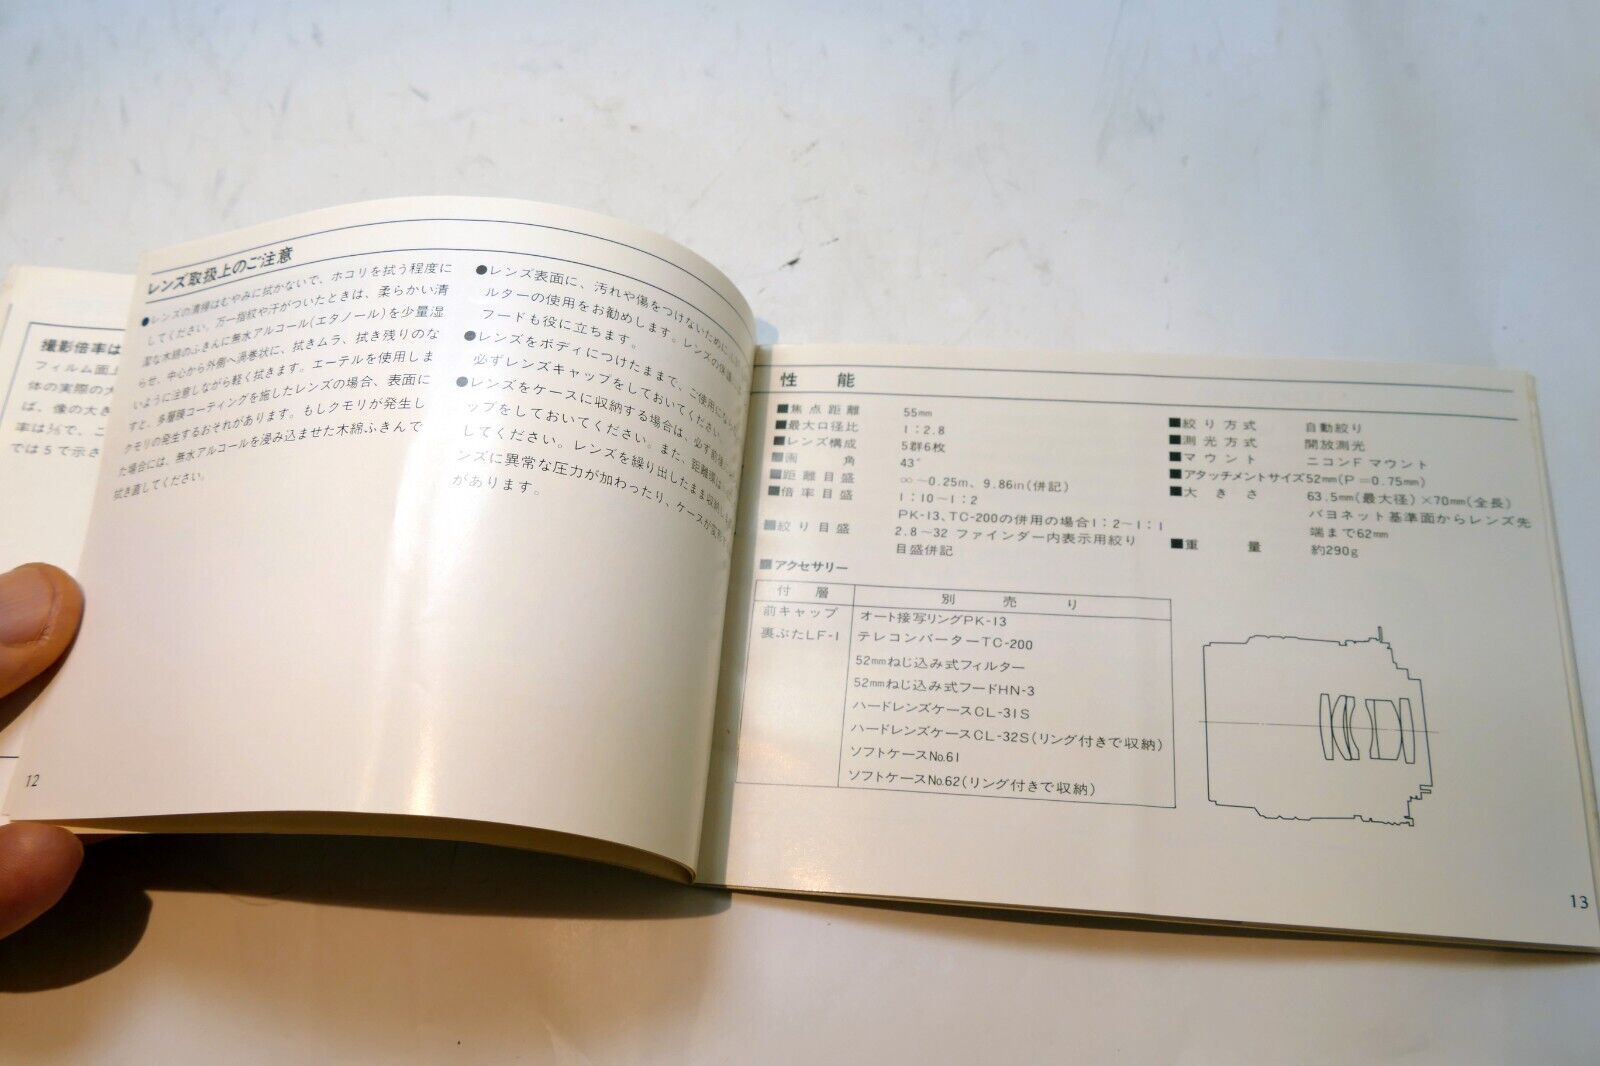 撮影倍率は
フィルム面上
体の実際の大
ば、像の大き
では5で示さ
レンズ取扱上のご注意
●レンズの清掃はむやみに拭かないで、ホコリを拭う程度に
してください。万一指紋や汗がついたときは、柔らかい清
潔な木綿のふきんに無水アルコール(エタノール)を少量湿
らせ、中心から外側へ渦巻状に、拭きムラ、拭き残りのな
いように注意しながら軽く拭きます。エーテルを使用しま
すと、多層膜コーティングを施したレンズの場合、表面に
クモリの発生するおそれがあります。もしクモリが発生し
た場合には、無水アルコールを浸み込ませた木綿ふきんで
拭き直してください。
●レンズ表面に、汚れや傷をつけないために
ルターの使用をお勧めします。レンズの保護に
フードも役に立ちます。
●レンズをボディにつけたままで、ご使用になら
必ずレンズキャップをしておいてください。
●レンズをケースに収納する場合は、必ず前後
ップをしておいてください。また、距離環は
してください。レンズを繰り出したまま収納し
ンズに異常な圧力が加わったり、ケースが変形
があります。
12
性 能
■焦点距離 55mm
■最大口径比 1:2.8
■レンズ構成 5群6枚
■画 角 43°
■距離目盛 ∞~0.25m、9.86in(併記)
■倍率目盛 1:10~1:2
PK-13、TC-200の併用の場合1:2~1:1
■絞り目盛 2.8~32 ファインダー内表示用絞り
目盛併記
■絞り方式 自動絞り
■測光方式 開放測光
■マウント ニコンFマウント
■アタッチメントサイズ52mm(P=0.75mm)
■大きさ 63.5mm(最大径)×70mm(全長)
バヨネット基準面からレンズ先
端まで62mm
■重 量 約290g
■アクセサリー
付 属 別 売 り
前キャップ オート接写リングPK-13
裏ぶたLF-1 テレコンバーターTC-200
52mmねじ込み式フィルター
52mmねじ込み式フードHN-3
ハードレンズケースCL-31S
ハードレンズケースCL-32S(リング付きで収納)
ソフトケースNo.61
ソフトケースNo.62(リング付きで収納)
13